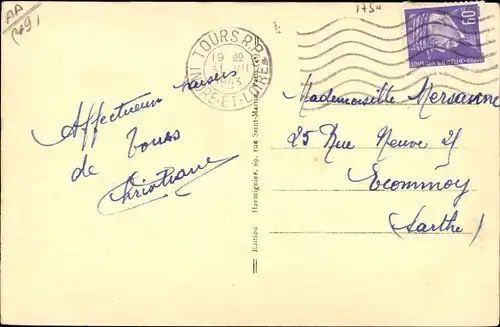 AA
(49)
175"
TOURS R.P.
19
INDRE-ET-LOIRE
Affectueux baisers
de Tours
Christiane
Edition Harmignies, 69, rue Saint-Mar
Mademoiselle Mersanne
25 Rue Neuve 25
Ecommoy
(Sarthe)